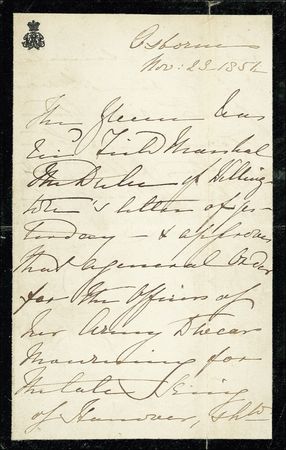 Osborne
Nov: 23. 1851
The Queen has
rec'd Field Marshal
The Duke of Welling-
ton's letter of yes-
terday – & approves
that a general Order
for the Officers of
her Army to wear
Mourning for
the late King
of Hanover, shd